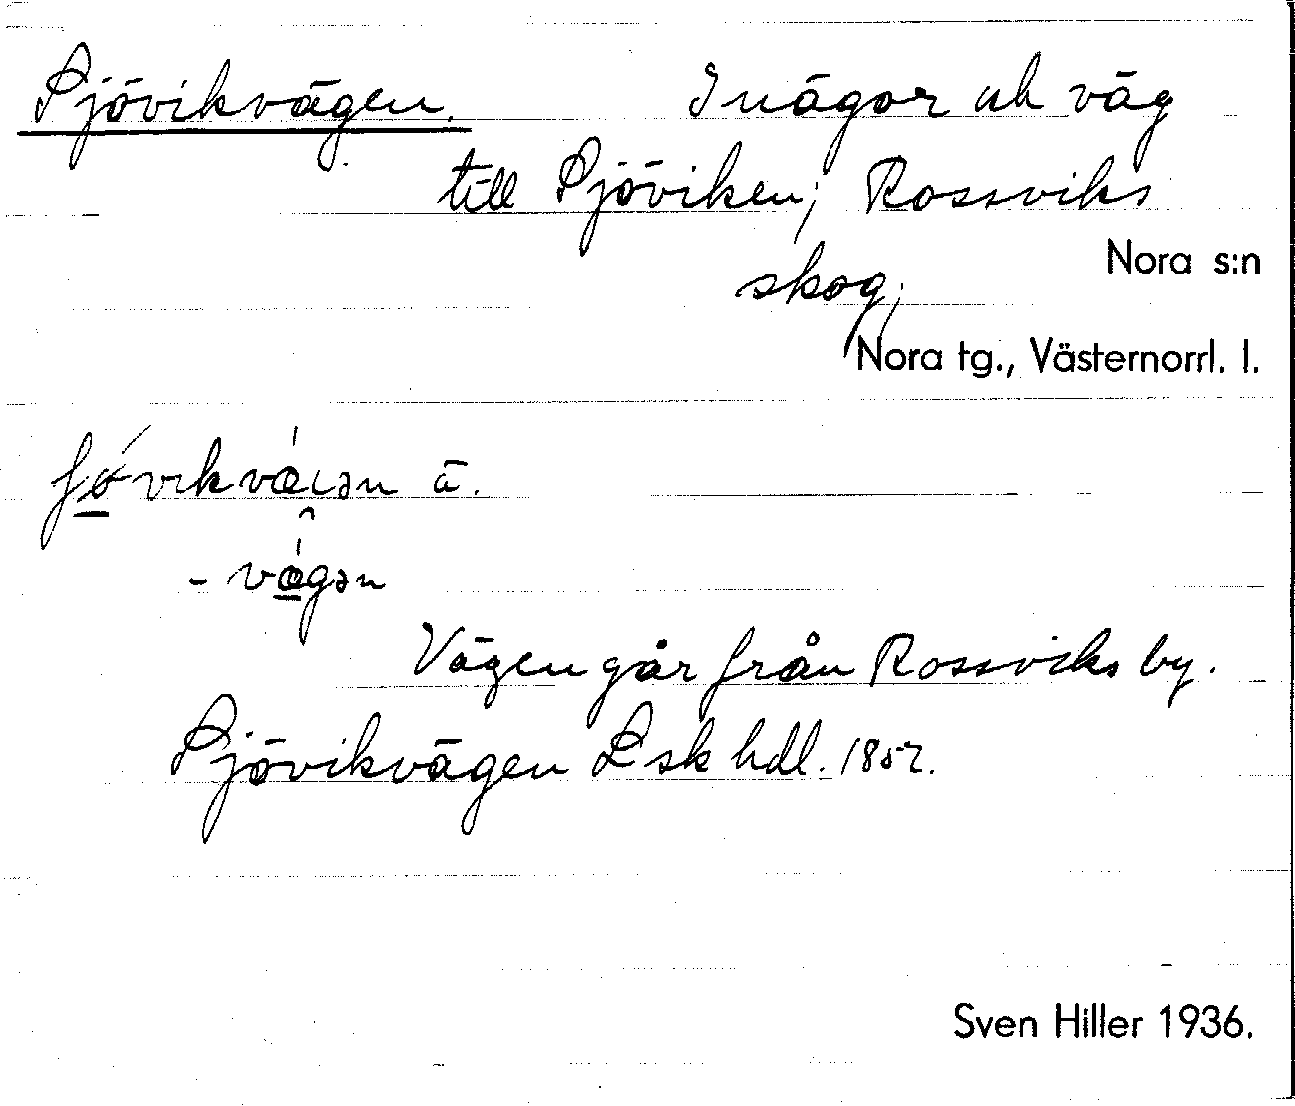 Sjövikvägen. Inägor uh väg
till Sjöviken, Rossviks
skog,
Nora s:n
Nora tg., Västernorrl. l.
ʃǿvikvǽɩən ä.
- vǽgən
Vägen går från Rossviks by.
Sjövikvägen Lsk hdl. 1857.
Sven Hiller 1936.